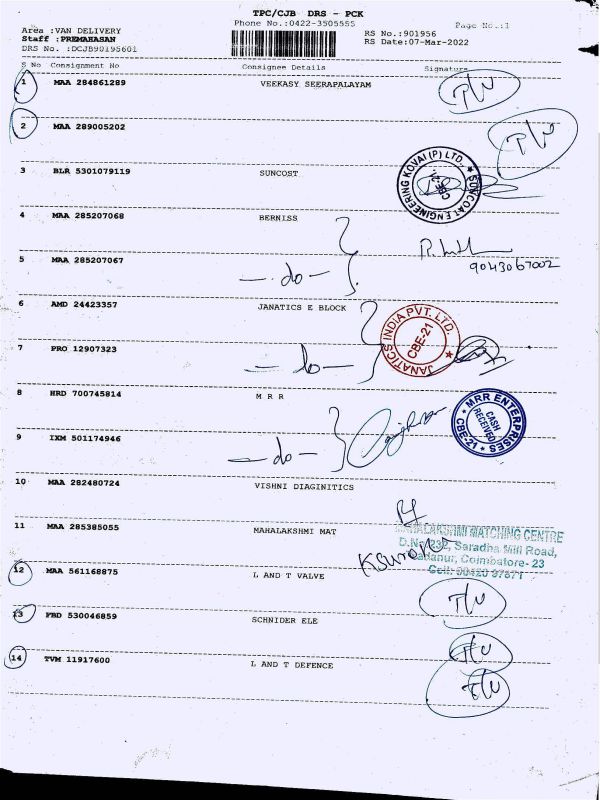 TPC/CJB DRS - PCK
Phone No.:0422-3505555
Page No.:1
Area :VAN DELIVERY
Staff :PREMAHASAN
DRS No. :DCJB90195601
RS No.:901956
RS Date:07-Mar-2022
S No Consignment No Consignee Details Signature
1 MAA 284861289 VEEKASY SEERAPALAYAM
2 MAA 289005202
3 BLR 5301079119 SUNCOST
SUNCOAT ENGINEERING KOVAI (P) LTD. CBE-21
4 MAA 285207068 BERNISS
5 MAA 285207067 - do -
9043067002
6 AMD 24423357 JANATICS E BLOCK
JANATICS INDIA PVT. LTD. CBE-21
7 PRO 12907323 - do -
8 HRD 700745814 M R R
MRR ENTERPRISES CASH RECEIVED CBE-21
9 IXM 501174946 - do -
10 MAA 282480724 VISHNI DIAGINITICS
11 MAA 285385055 MAHALAKSHMI MAT
MAHALAKSHMI MATCHING CENTRE
Saradha Mill Road,
Coimbatore- 23
12 MAA 561168875 L AND T VALVE
13 FBD 530046859 SCHNIDER ELE
14 TVM 11917600 L AND T DEFENCE